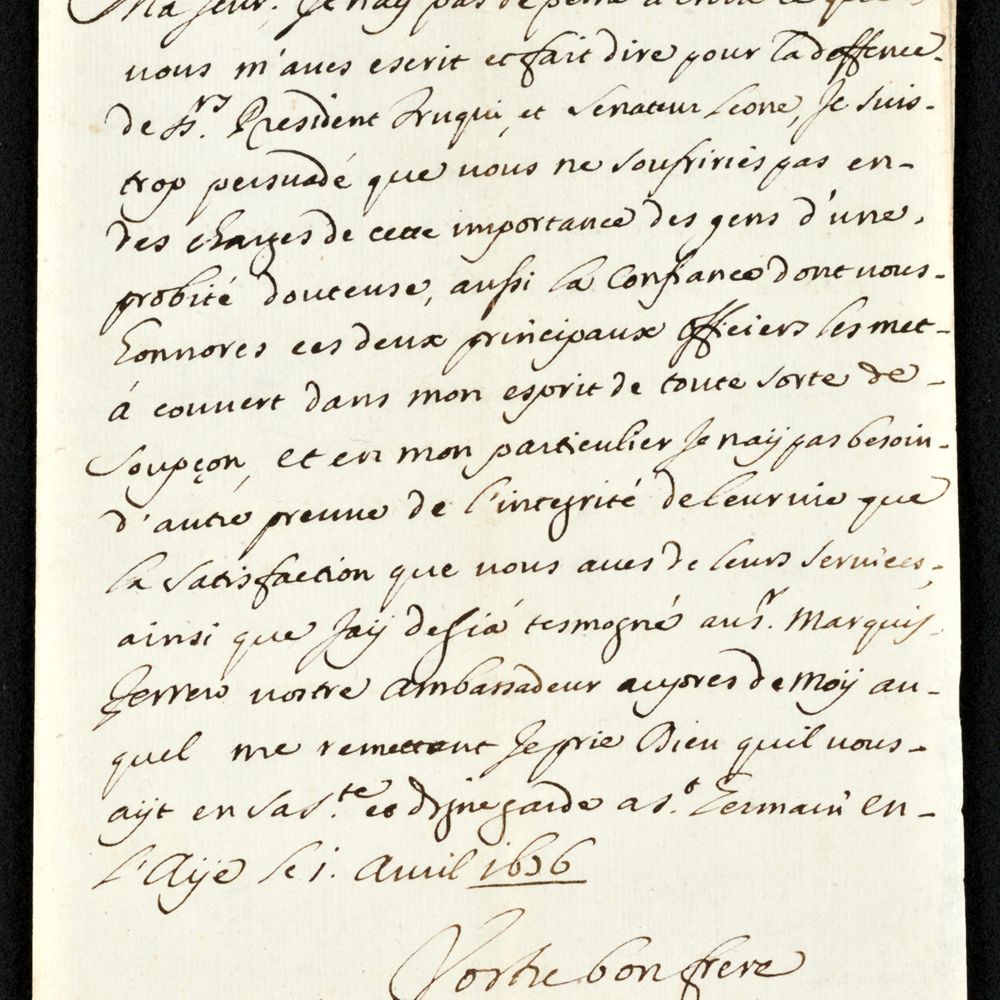 Ma seur. Je nay pas de peine a croire ce que
vous m'aues escrit et fait dire pour la deffence
de Srs. President Truqui, et Senateur Leone, Je suis
trop persuadé que vous ne soufririés pas en
des charges de cette importance des gens d'une
probité douteuse, aussi la Confiance dont vous
honnores ces deux principaux officiers les met
á couvert dans mon esprit de toute sorte de
soupçon, et en mon particulier Je naÿ pas besoin
d'autre preuue de l'integrité de leur vie que
la satisfaction que vous aues de leurs services,
ainsi que Jaÿ desiá tesmogné au Sr. Marquis
Ferrero vostre Ambassadeur aupres de Moÿ au
quel me remettant Je prie Dieu quil vous
aÿt en sa Ste et digne garde a St. Germain en
l'Aÿe le 1. Avril 1676
Vostre bon frere